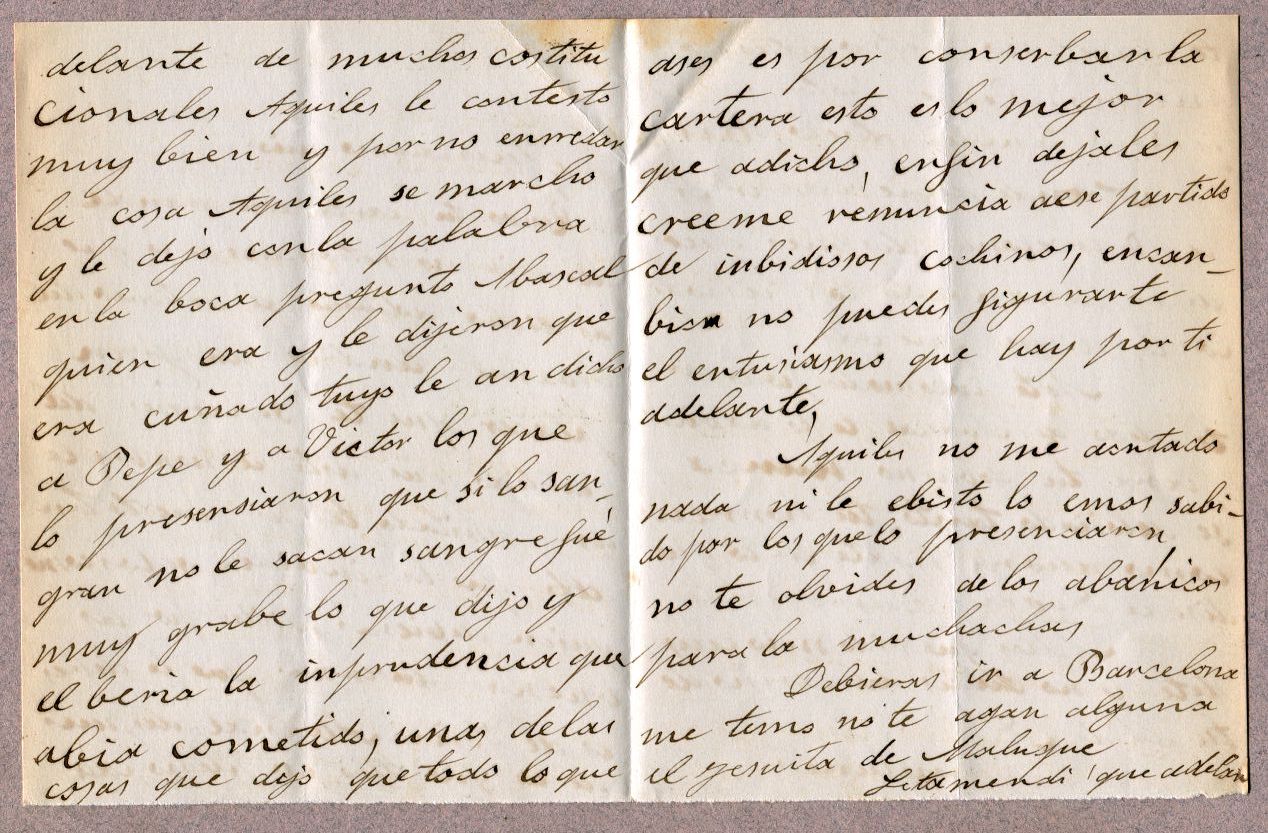 delante de muchos costitu
cionales Aquiles le contesto
muy bien y por no enrredar
la cosa Aquiles se marcho
y le dejo con la palabra
en la boca pregunto Abascal
quien era y le dijeron que
era cuñado tuyo le an dicho
a Pepe y a Victor los que
lo presensiaron que si lo san-
gran no le sacan sangre fue
muy grabe lo que dijo y
el beria la inprudencia que
abia cometido, unas de las
cosas que dijo que todo lo que
ases es por conserbar la
cartera esto es lo mejor
que adicho, enfin dejales
creeme renuncia aese partido
de inbidiosos cochinos, encan-
bio no puedes figurarte
el entusiasmo que hay por ti
adelante,
Aquiles no me acntado
nada ni le ebisto lo emos sabi-
do por los quelo presenciaron,
no te olvides de los abanicos
para la muchachas
Debieras ir a Barcelona
me temo no te agan alguna
el gesuita de
Letamendi que adelan